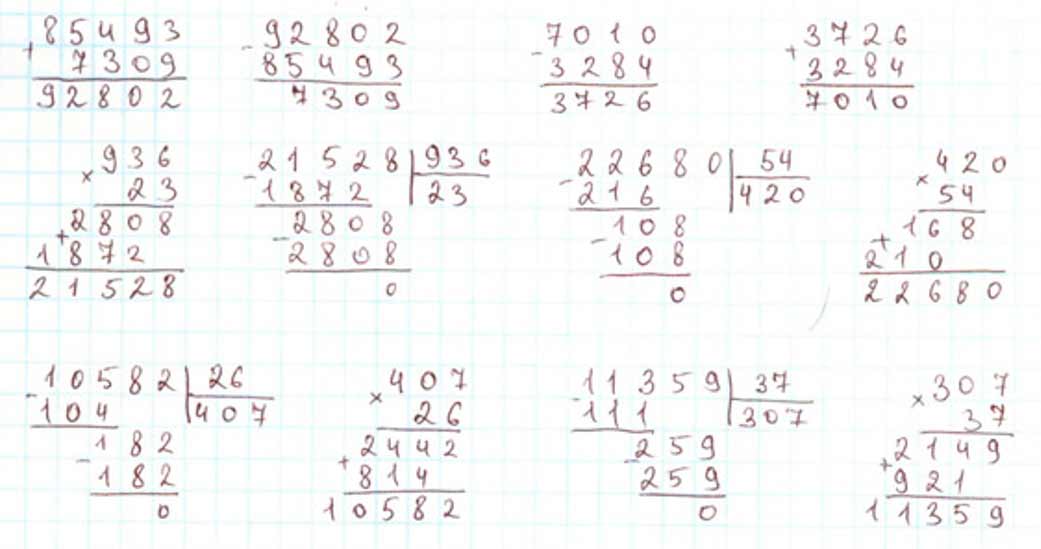 + 85493
7309
92802
- 92802
85493
7309
- 7010
3284
3726
+ 3726
3284
7010
× 936
23
+ 2808
1872
21528
- 21528 | 936
1872 | 23
- 2808
2808
0
- 22680 | 54
216 | 420
- 108
108
0
× 420
54
+ 168
210
22680
- 10582 | 26
104 | 407
- 182
182
0
× 407
26
+ 2442
814
10582
- 11359 | 37
111 | 307
- 259
259
0
× 307
37
+ 2149
921
11359